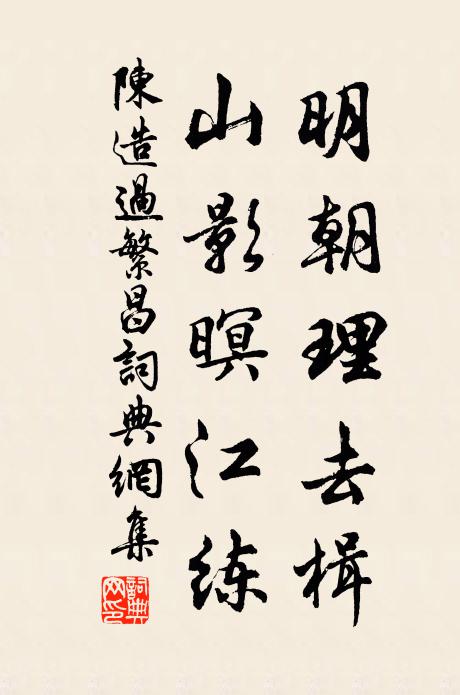 明朝理去楫
山影暝江练
陳造過繁昌詞典網集
詞典網印